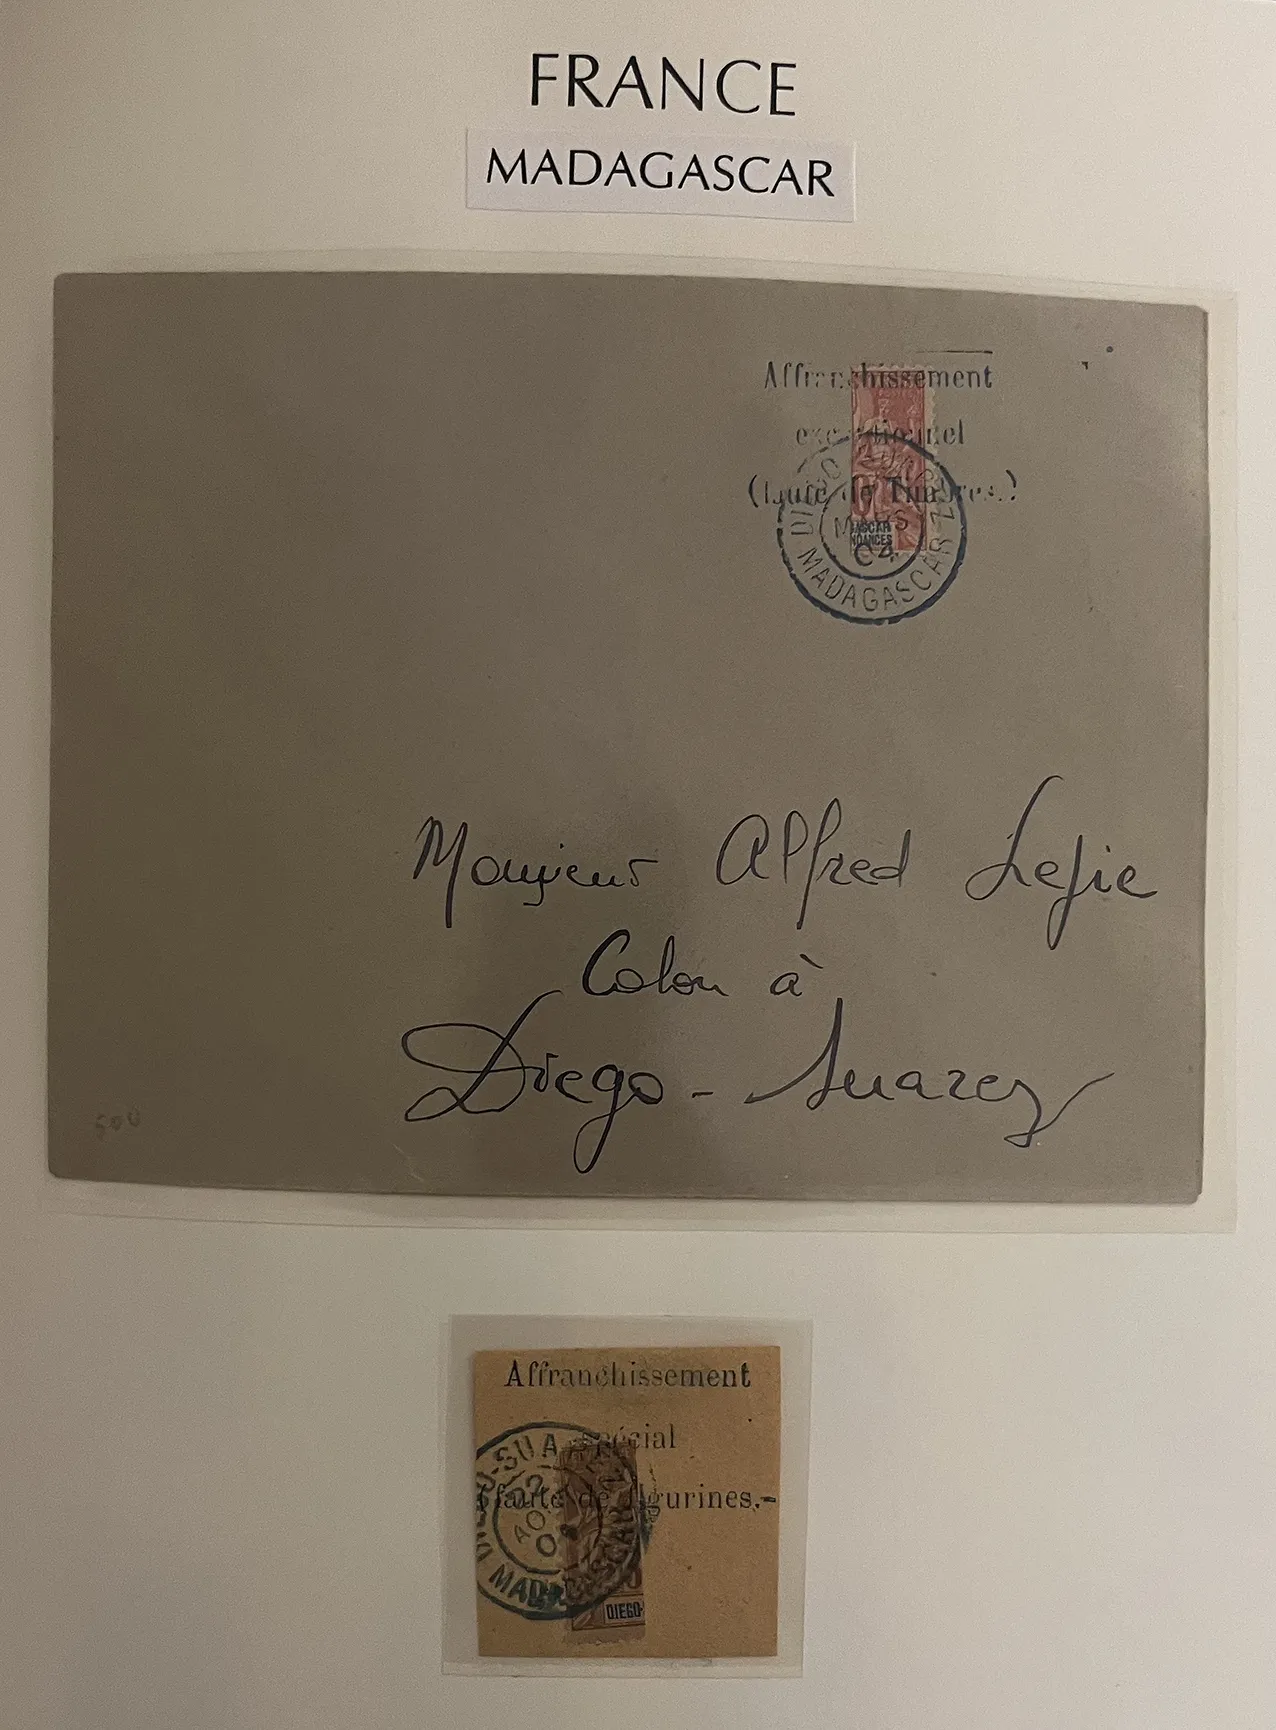 FRANCE
MADAGASCAR
Affranchissement
exceptionnel
(faute de Timbres.)
DIEGO SUAREZ
MARS
04
MADAGASCAR
ASCAR
NDANCES
Monsieur Alfred Lefie
Colon à
Diego-Suarez
500
Affranchissement
spécial
(faute de figurines.-
DIEGO-SUAREZ
22
AOU
04
MADAGASCAR
DIEGO-